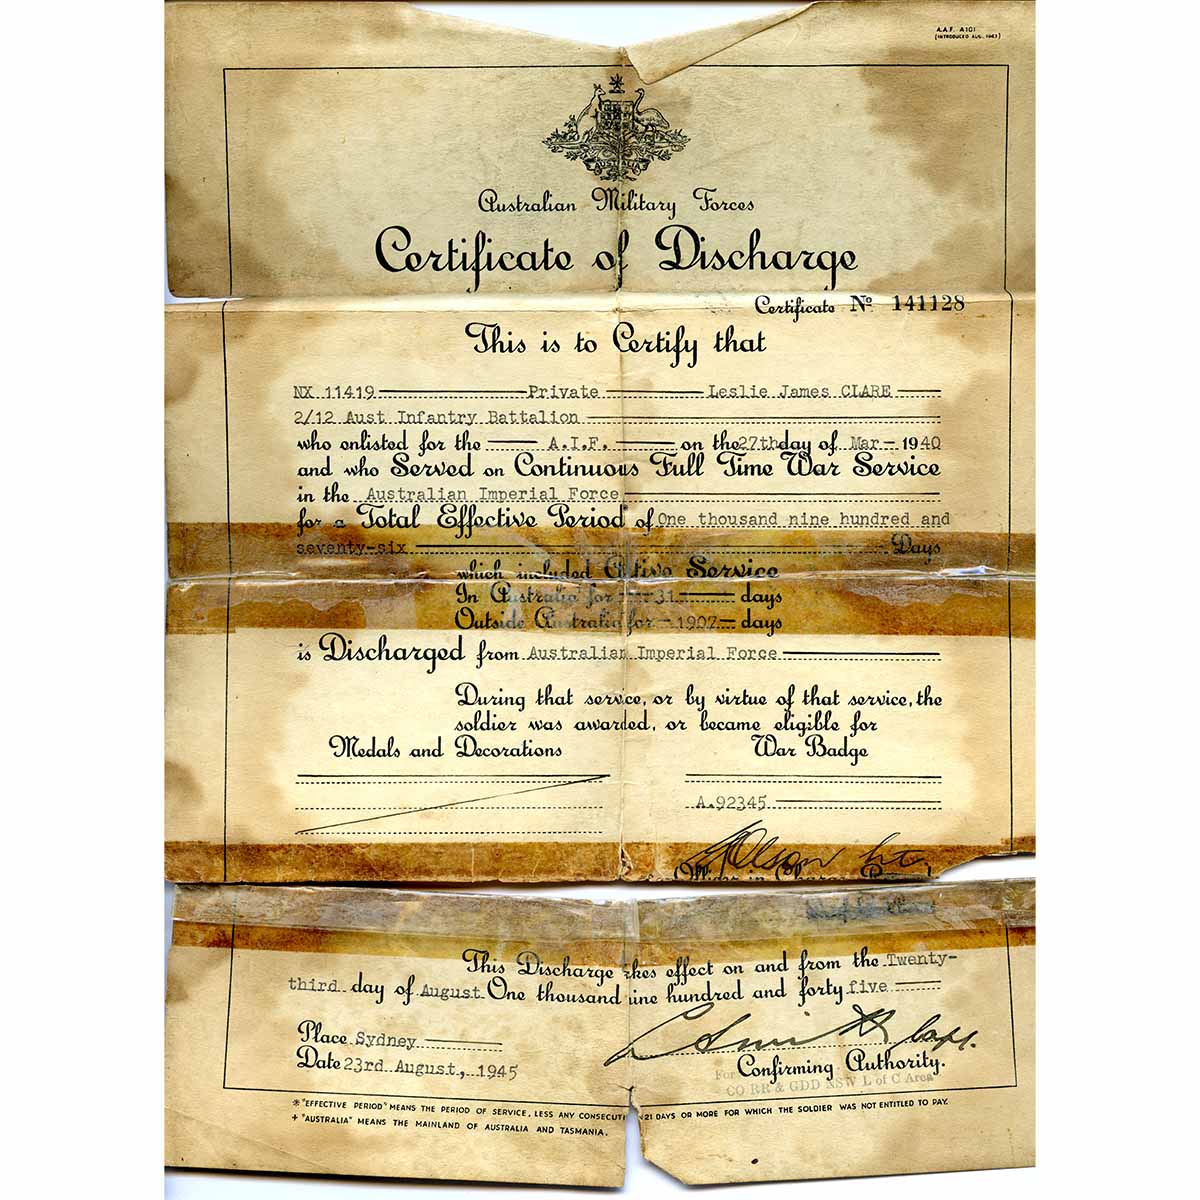 A.A.F. A101
(INTRODUCED AUG. 1943)
AUSTRALIA
Australian Military Forces
Certificate of Discharge
Certificate No 141128
This is to Certify that
NX 11419 Private Leslie James CLARE
2/12 Aust Infantry Battalion
who enlisted for the A.I.F. on the 27th day of Mar 1940
and who Served on Continuous Full Time War Service
in the Australian Imperial Force
for a Total Effective Period* of One thousand nine hundred and
seventy-six Days
which included Active Service
In Australia for 31 days
Outside Australia for 1907 days
is Discharged from Australian Imperial Force
During that service, or by virtue of that service, the
soldier was awarded, or became eligible for
Medals and Decorations War Badge
A.92345
Olson Lt.
Officer in Charge
This Discharge takes effect on and from the Twenty-
third day of August One thousand nine hundred and forty five
Place Sydney
Date 23rd August, 1945
Capt.
Confirming Authority.
For
CO RR & GDD NSW L of C Area
* "EFFECTIVE PERIOD" MEANS THE PERIOD OF SERVICE, LESS ANY CONSECUTI 21 DAYS OR MORE FOR WHICH THE SOLDIER WAS NOT ENTITLED TO PAY.
+ "AUSTRALIA" MEANS THE MAINLAND OF AUSTRALIA AND TASMANIA.